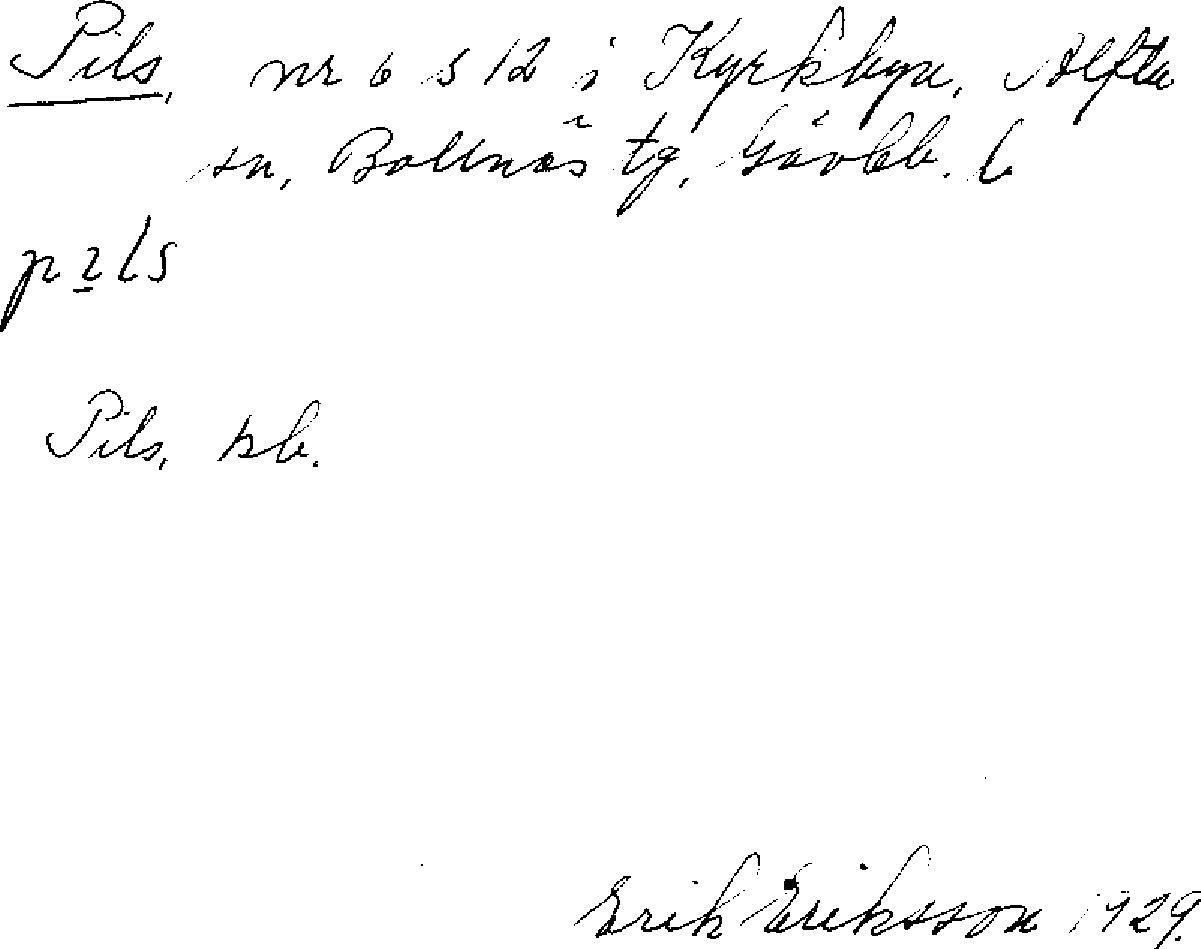 Pils, nr 6 s 12 i Kyrkbyn, Alfta
sn, Bollnäs tg, Gävlb. l.
Pils, kb.
Erik Eriksson 1929.